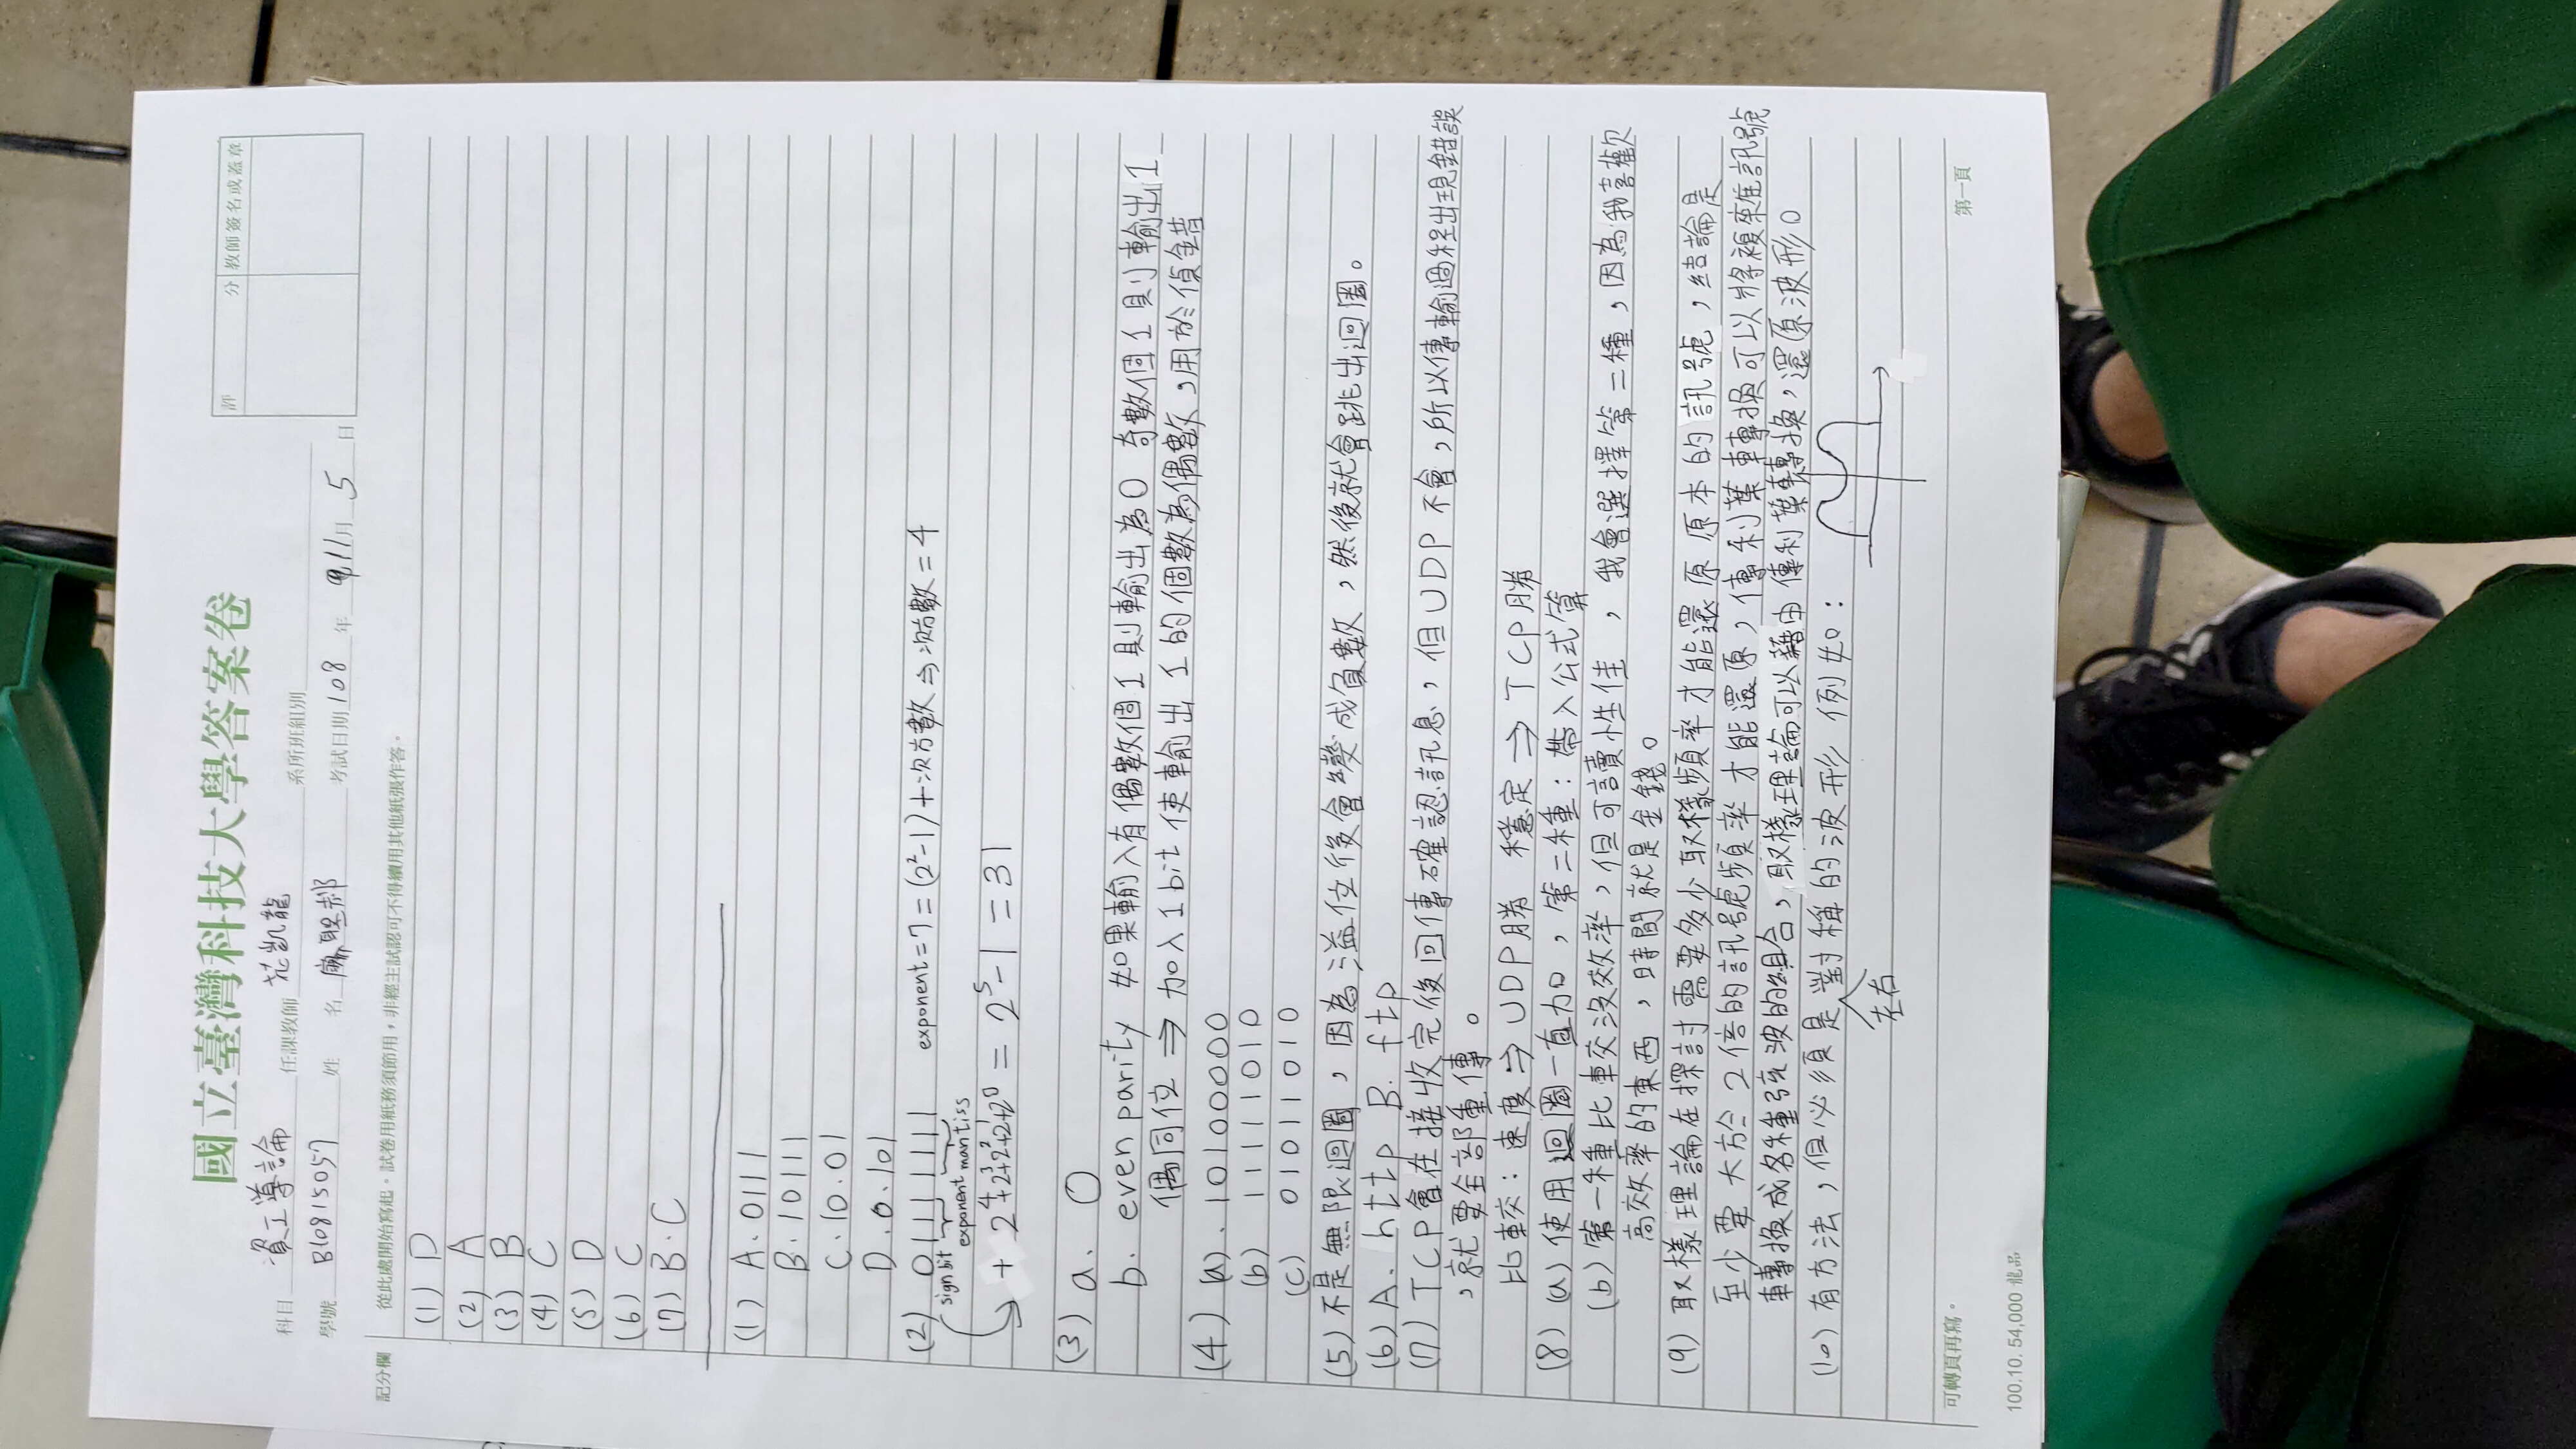 國立臺灣科技大學答案卷
評 分 教師簽名或蓋章
科目 資工導論 任課教師 范凱龍 系所班組別
學號 B10815057 姓 名 考試日期 108 年 11月 5 日
記分欄 從此處開始寫起。試卷用紙務須節用,非經主試認可不得續用其他紙張作答。
(1) D
(2) A
(3) B
(4) C
(5) D
(6) C
(7) B.C
(1) A. 0111
B. 10111
C. 10.01
D. 0.101
(2) 01111111 exponent=7=(2²-1)+次方數⇒次方數=4
sign bit exponent mantiss
+ 2⁴+2³+2²+2¹+2⁰ = 2⁵-1 = 31
(3) a. 0
b. even parity 如果輸入有偶數個1則輸出為0 奇數個1則輸出1
偶同位 ⇒ 加入1bit使輸出1的個數為偶數,用於偵錯
(4) (a). 10100000
(b) 11111010
(c) 01011010
(5) 不是無限迴圈,因為溢位後會變成負數,然後就會跳出迴圈。
(6) A. http B. ftp
(7) TCP會在接收完後回傳確認訊息,但UDP不會,所以傳輸過程出現錯誤
,就要全部重傳。
比較:速度⇒UDP勝 穩定⇒TCP勝
(8) (a) 使用迴圈一直加,第二種:帶入公式算
(b) 第一種比較沒效率,但可讀性佳,我會選擇第二種,因為我喜歡
高效率的東西,時間就是金錢。
(9) 取樣理論在探討需要多少取樣頻率才能還原原本的訊號,結論是
至少要大於2倍的訊號頻率才能還原,傳利葉轉換可以將複雜訊號
轉換成各種弦波的組合,取樣理論可以藉由傳利葉轉換,還原波形。
(10) 有方法,但必須是對稱的波形 例如:
左右
可轉頁再寫。
第一頁
100.10. 54,000 龍品